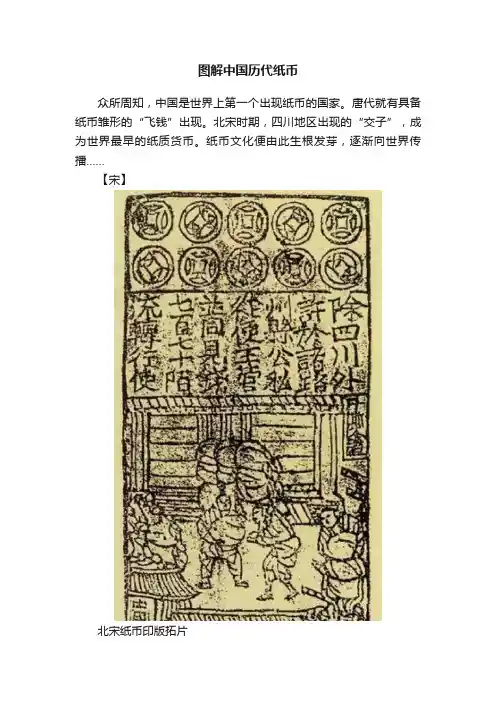 图解中国历代纸币
众所周知，中国是世界上第一个出现纸币的国家。唐代就有具备
纸币雏形的“飞钱”出现。北宋时期，四川地区出现的“交子”，成
为世界最早的纸质货币。纸币文化便由此生根发芽，逐渐向世界传
播……
【宋】
除四川外
許於諸路
州縣公私
從便主管
並同見錢
七百七十陌
流轉行使
北宋纸币印版拓片